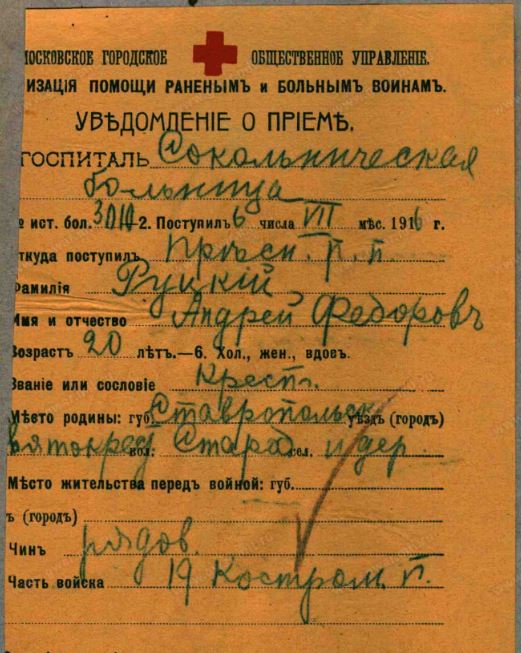 МОСКОВСКОЕ ГОРОДСКОЕ ОБЩЕСТВЕННОЕ УПРАВЛЕНІЕ.
ИЗАЦІЯ ПОМОЩИ РАНЕНЫМЪ и БОЛЬНЫМЪ ВОИНАМЪ.
УВѢДОМЛЕНІЕ О ПРІЕМѢ.
ГОСПИТАЛЬ Сокольническая
больница
№ ист. бол. 2. Поступилъ 6 числа VII мѣс. 1916 г.
ткуда поступилъ Прѣсн. р. п.
амилія Руцкій
Имя и отчество Андрей Федоровъ
Возрастъ 20 лѣтъ.—6. Хол., жен., вдовъ.
Званіе или сословіе Крест.
Мѣсто родины: губ. Ставропольск уѣздъ (городъ)
вол. Старод сел. и дер.
Мѣсто жительства передъ войной: губ.
ъ (городъ)
Чинъ рядов.
Часть войска 19 Костром. п.